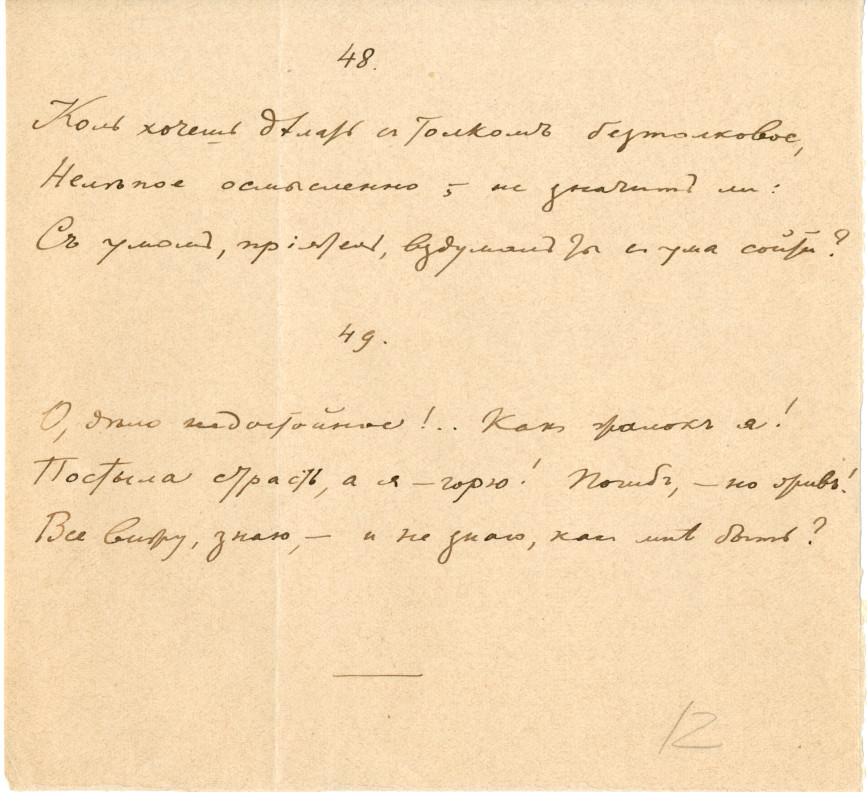 48.
Коль хочешь дѣлать съ толкомъ безтолковое,
Нелѣпое осмысленно, не значитъ ли:
Съ умомъ, пріятель, вздумалъ ты съ ума сойти?
49.
О, дѣло недостойное!.. Какъ жалокъ я!
Постыла страсть, а я – горю! Погибъ, – но живъ!
Все вижу, знаю, – и не знаю, какъ мнѣ быть?
12